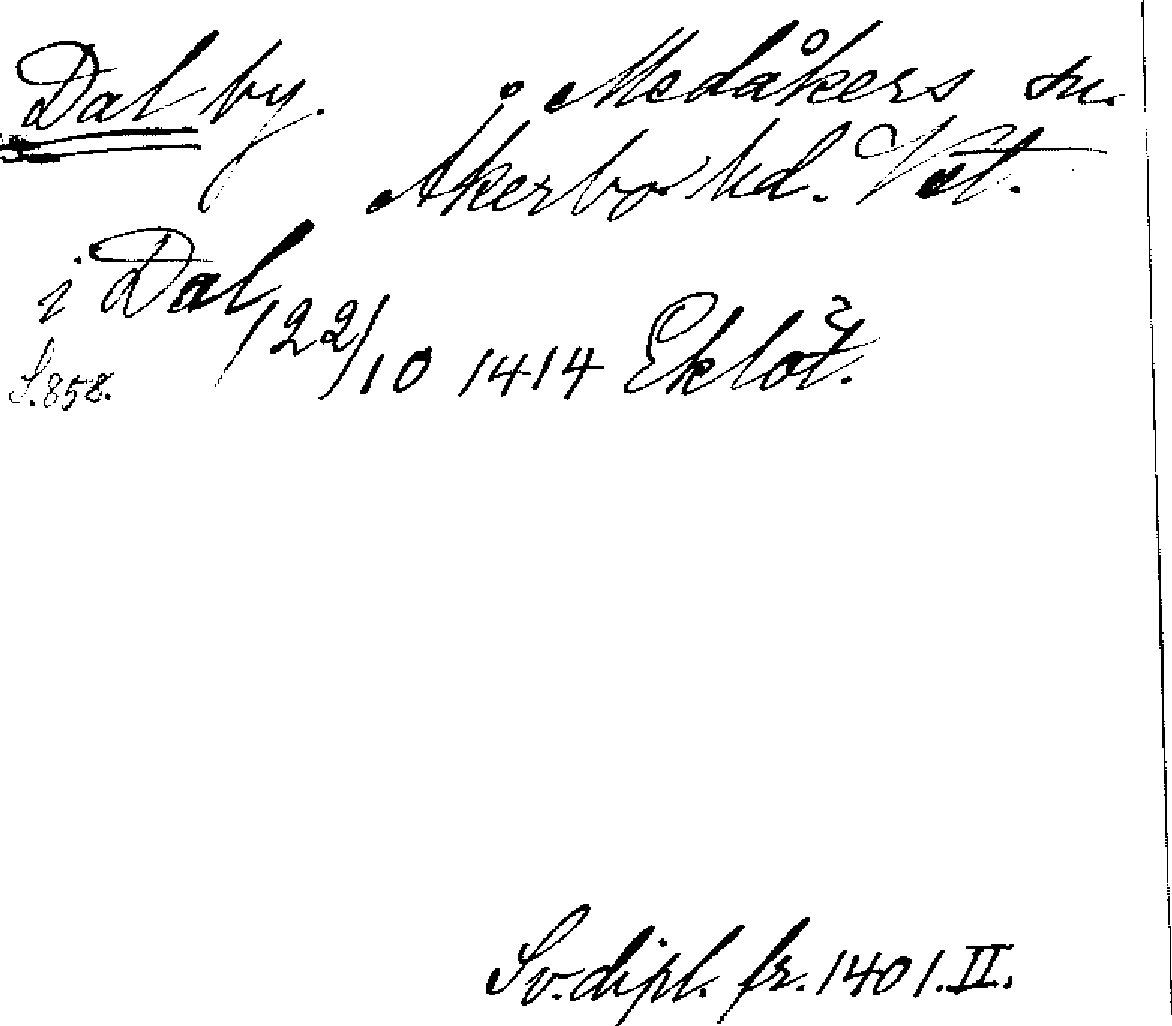 Dal by. i Medåkers sn.
Åkerbo hd. Vst.
i Dal 22/10 1414 Eklöt.
S. 858.
Sv. dipl. fr. 1401. II.